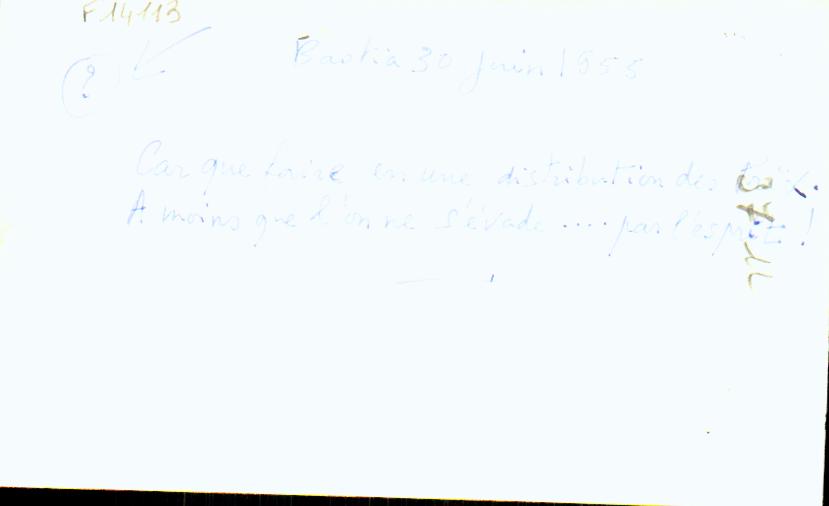 F14113
(?)
Bastia 30 Juin 1955
Car que faire en une distribution des
A moins que l'on ne s'évade .... par l'esprit !